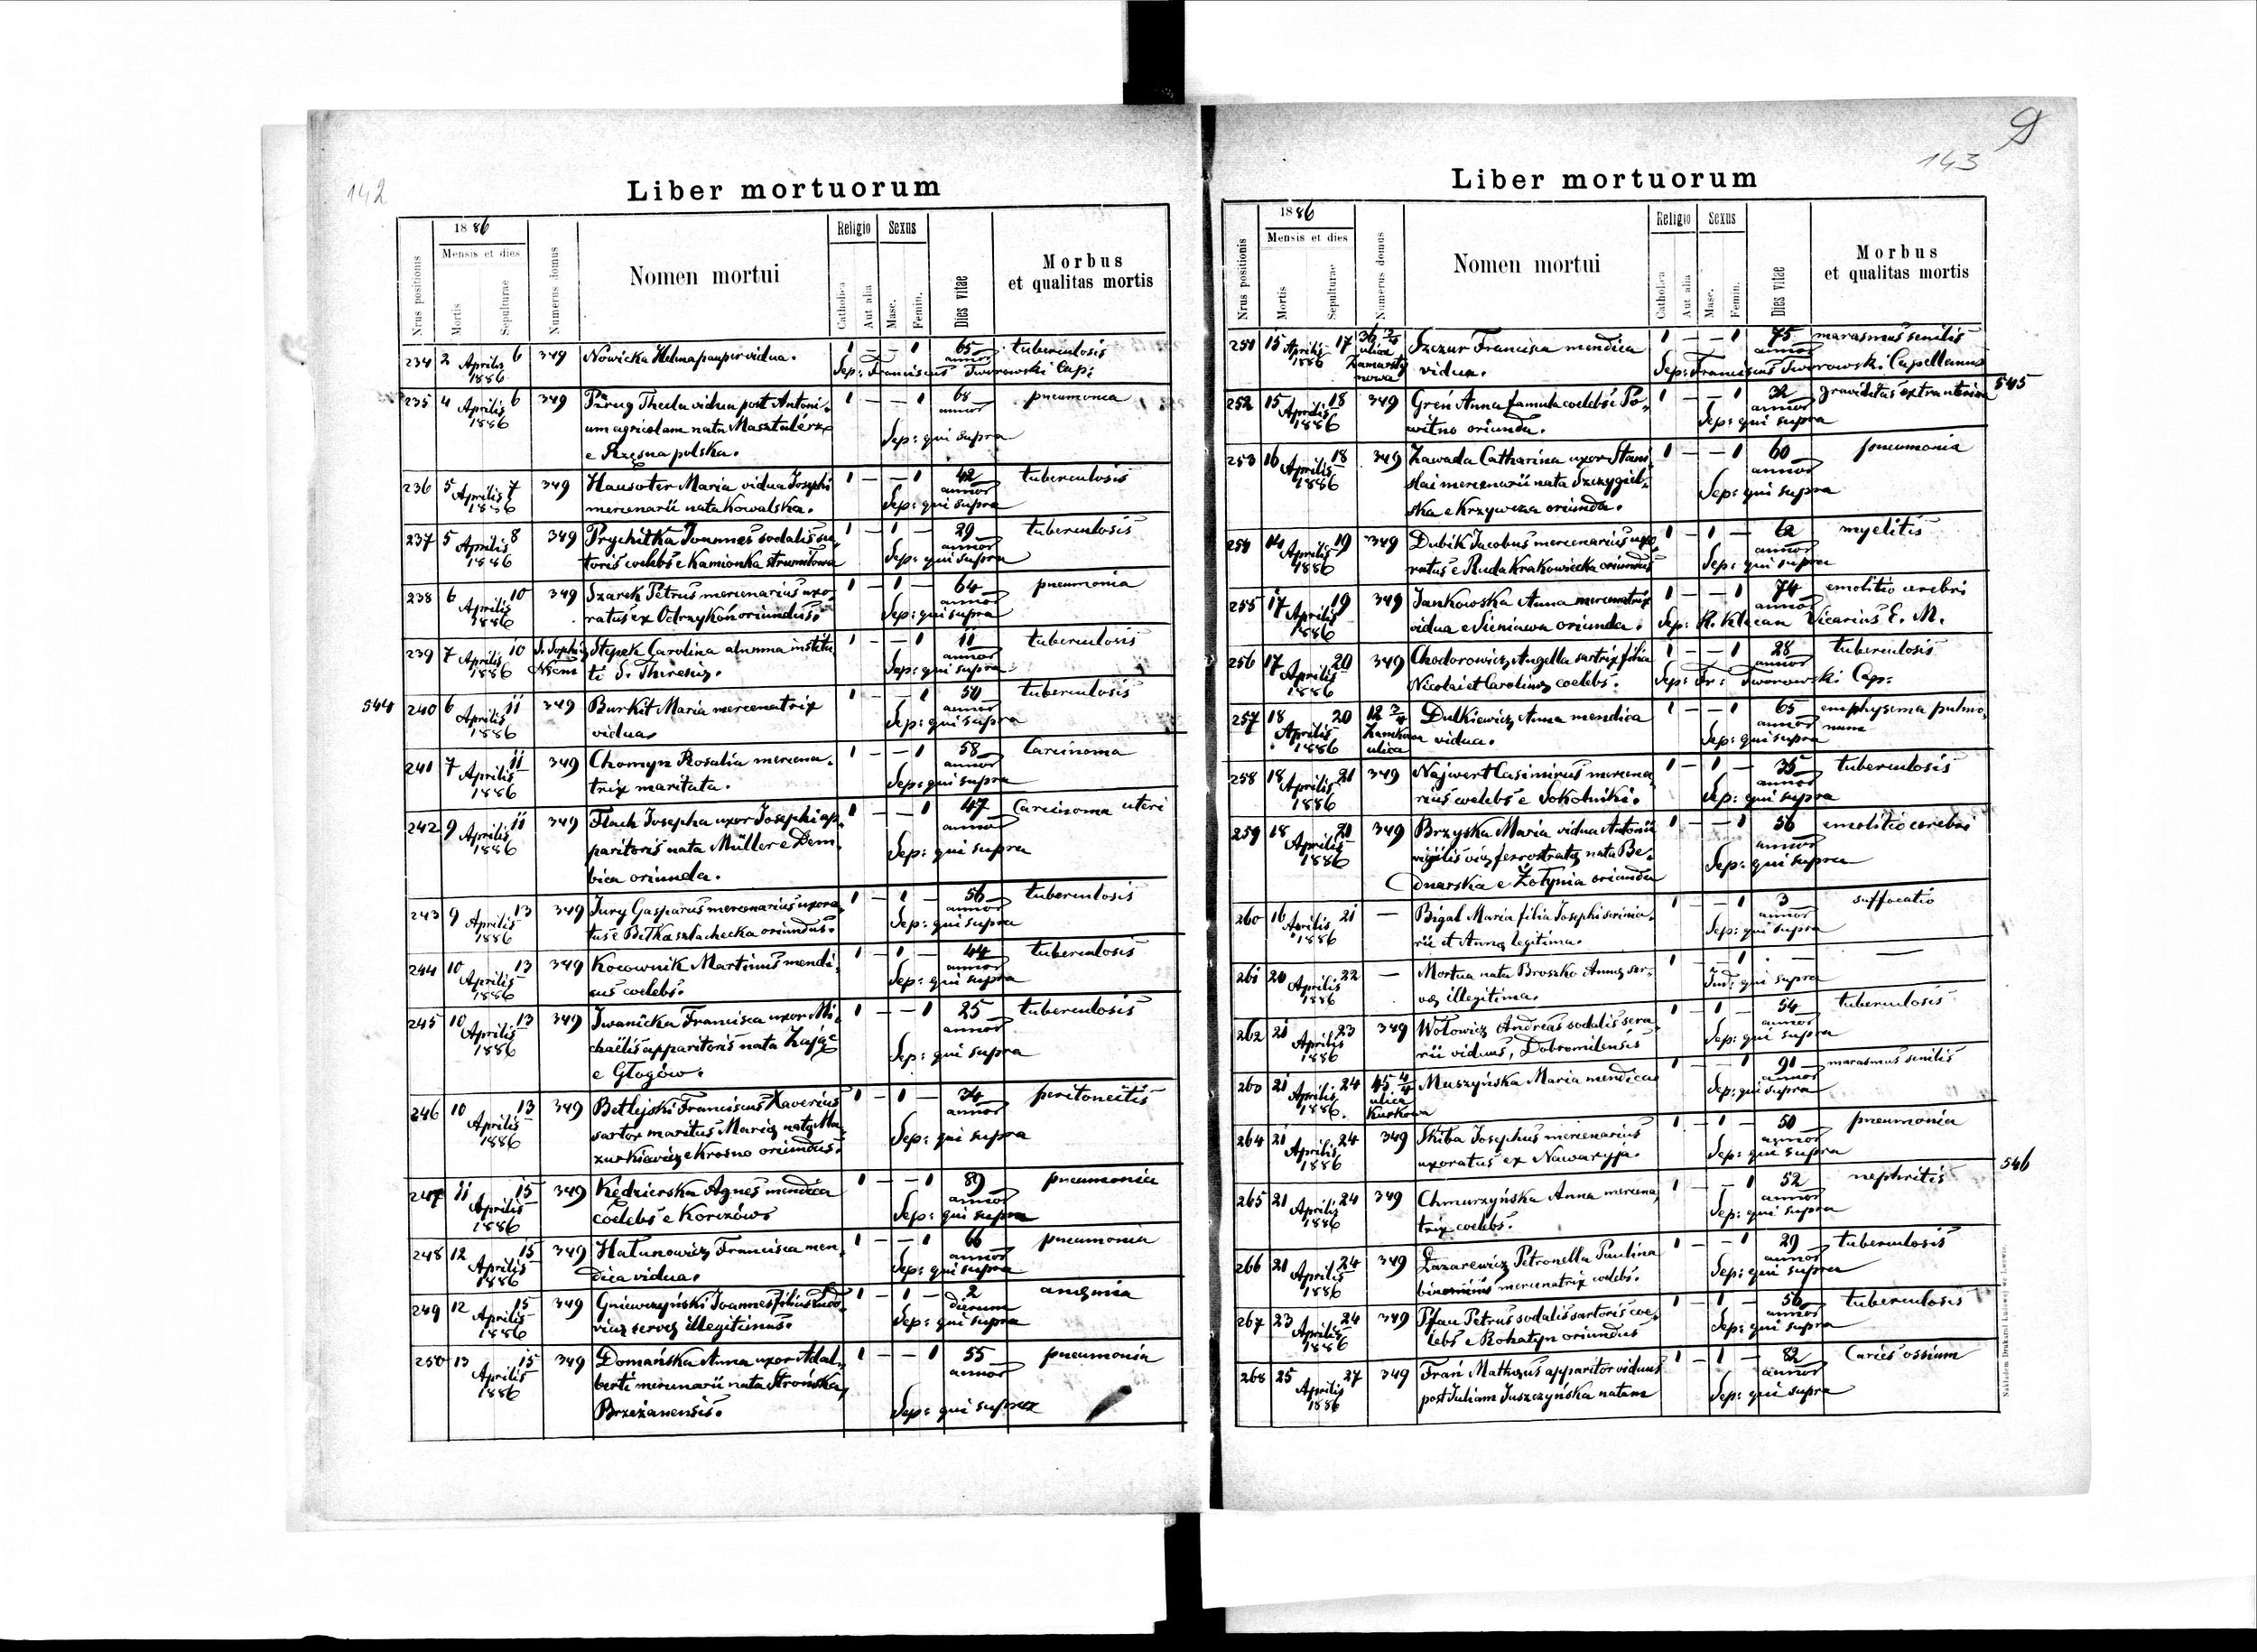 142
Liber mortuorum
1886
Mensis et dies
Nrus positionis
Mortis
Sepulturae
Numerus domus
Nomen mortui
Religio
Catholica
Aut alia
Sexus
Masc.
Femin.
Dies vitae
Morbus
et qualitas mortis
234 2 Aprilis 1886 6 349 Nowicka Helena pauper vidua. 1 – – 1 65 annor tuberculosis
Sep: Franciscus Tworowski Cap:
235 4 Aprilis 1886 6 349 Thecla vidua post Antoni-
um agricolam nata
e Rzęsna polska. 1 – – 1 68 annor pneumonia
Sep: qui supra
236 5 Aprilis 1886 7 349 Hausoter Maria vidua Josephi
mercenarii nata Kowalska. 1 – – 1 42 annor tuberculosis
Sep: qui supra
237 5 Aprilis 1886 8 349 Prychitka Joannes sodalis su-
toris coelebs e Kamionka strumilowa 1 – 1 – 29 annor tuberculosis
Sep: qui supra
238 6 Aprilis 1886 10 349 Szarek Petrus mercenarius uxo-
ratus ex Odrzykoń oriundus. 1 – 1 – 64 annor pneumonia
Sep: qui supra
239 7 Aprilis 1886 10 Stępek Carolina alumna institu-
ti S. Theresię. 1 – – 1 11 annor tuberculosis
Sep: qui supra
544
240 6 Aprilis 1886 11 349 Burkit Maria mercenatrix
vidua 1 – – 1 50 annor tuberculosis
Sep: qui supra
241 7 Aprilis 1886 11 349 Chomyn Rosalia mercena-
trix maritata. 1 – – 1 58 annor Carcinoma
Sep: qui supra
242 9 Aprilis 1886 11 349 Flach Josepha uxor Josephi ap-
paritoris nata Müller e Dem-
bica oriunda. 1 – – 1 47 annor Carcinoma uteri
Sep: qui supra
243 9 Aprilis 1886 13 349 Jury Gasparus mercenarius uxora-
tus e Biłka szlachecka oriundus. 1 – 1 – 56 annor tuberculosis
Sep: qui supra
244 10 Aprilis 1886 13 349 Kocownik Martinus mendi-
cus coelebs. 1 – 1 – 44 annor tuberculosis
Sep: qui supra
245 10 Aprilis 1886 13 349 Iwanicka Francisca uxor Mi-
chaëlis apparitoris nata Zając
e Głogów. 1 – – 1 25 annor tuberculosis
Sep: qui supra
246 10 Aprilis 1886 13 349 Betlejski Franciscus Xaverius
sartor maritus Marię natę Ma-
zurkiewicz e Krosno oriundus. 1 – 1 – 34 annor peritoneitis
Sep: qui supra
247 11 Aprilis 1886 15 349 Kędzierska Agnes mendica
coelebs e Korczów 1 – – 1 89 annor pneumonia
Sep: qui supra
248 12 Aprilis 1886 15 349 Hałunowicz Francisca men-
dica vidua. 1 – – 1 66 annor pneumonia
Sep: qui supra
249 12 Aprilis 1886 15 349 Gniewczyński Joannes filius Ludo-
vicę servę illegitimus. 1 – 1 – 2 dierum anęmia
Sep: qui supra
250 13 Aprilis 1886 15 349 Domańska Anna uxor Adal-
berti mercenarii nata Strońska,
Brzeżanensis. 1 – – 1 55 annor pneumonia
Sep: qui supra
143
Liber mortuorum
1886
Mensis et dies
Nrus positionis
Mortis
Sepulturae
Numerus domus
Nomen mortui
Religio
Catholica
Aut alia
Sexus
Masc.
Femin.
Dies vitae
Morbus
et qualitas mortis
251 15 Aprilis 1886 17 ulica Szczur Francisca mendica
vidua. 1 – – 1 75 annor marasmus senilis
Sep: Franciscus Tworowski Capellanus
545
252 15 Aprilis 1886 18 349 Greń Anna famula coelebs e Po-
witno oriunda. 1 – – 1 32 annor graviditas extrauterina
Sep: qui supra
253 16 Aprilis 1886 18 349 Zawada Catharina uxor Stanis-
lai mercenarii nata Szczygiel-
ska e Krzywcza oriunda. 1 – – 1 60 annor pneumonia
Sep: qui supra
254 14 Aprilis 1886 19 349 Dubik Jacobus mercenarius uxo-
ratus e Ruda Krakowiecka oriundus 1 – 1 – 62 annor myelitis
Sep: qui supra
255 17 Aprilis 1886 19 349 Jankowska Anna mercenatrix
vidua e Sieniawa oriunda. 1 – – 1 74 annor emolitio cerebri
Sep: R. Klucan Vicarius E. M.
256 17 Aprilis 1886 20 349 Chodorowicz Angella sartrix filia
Nicolai et Carolinę coelebs. 1 – – 1 28 annor tuberculosis
Sep: Fr: Tworowski Cap:
257 18 Aprilis 1886 20 12 3/4 Zamkowa ulica Dutkiewicz Anna mendica
vidua. 1 – – 1 65 annor emphysema pulmo-
num
Sep: qui supra
258 18 Aprilis 1886 21 349 Najwert Casimirus mercena-
rius coelebs e Sokolniki. 1 – 1 – 35 annor tuberculosis
Sep: qui supra
259 18 Aprilis 1886 21 349 Brzyska Maria vidua Antonii
vigilis vię ferrostratę nata Be-
dnarska e Żołynia oriunda 1 – – 1 56 annor emolitio cerebri
Sep: qui supra
260 16 Aprilis 1886 21 — Bigal Maria filia Josephi scrinia-
rii et Annę legitima. 1 – – 1 3 annor suffocatio
Sep: qui supra
261 20 Aprilis 1886 22 — Mortua nata Broszko Annę ser-
vę illegitima. 1 – – 1 —
qui supra
262 21 Aprilis 1886 23 349 Wołowicz Andreas sodalis sera-
rii viduus, Dobromilensis 1 – 1 – 54 annor tuberculosis
Sep: qui supra
260 21 Aprilis 1886 24 45 4/4 ulica Kurkowa Muszyńska Maria mendica 1 – – 1 91 annor marasmus senilis
Sep: qui supra
264 21 Aprilis 1886 24 349 Skiba Josephus mercenarius
uxoratus ex Nawaryja. 1 – 1 – 50 annor pneumonia
Sep: qui supra
546
265 21 Aprilis 1886 24 349 Chmurzyńska Anna mercena-
trix coelebs. 1 – – 1 52 annor nephritis
Sep: qui supra
266 21 Aprilis 1886 24 349 Łazarewicz Petronella Paulina
binominis mercenatrix coelebs. 1 – – 1 29 annor tuberculosis
Sep: qui supra
267 23 Aprilis 1886 24 349 Pfau Petrus sodalis sartoris coe-
lebs e Rohatyn oriundus 1 – 1 – 56 annor tuberculosis
Sep: qui supra
268 25 Aprilis 1886 27 349 Frań Mathęus apparitor viduus
post Juliam Juszczyńska natam 1 – 1 – 82 annor Caries ossium
Sep: qui supra
Nakładem Drukarni Ludowej we Lwowie.